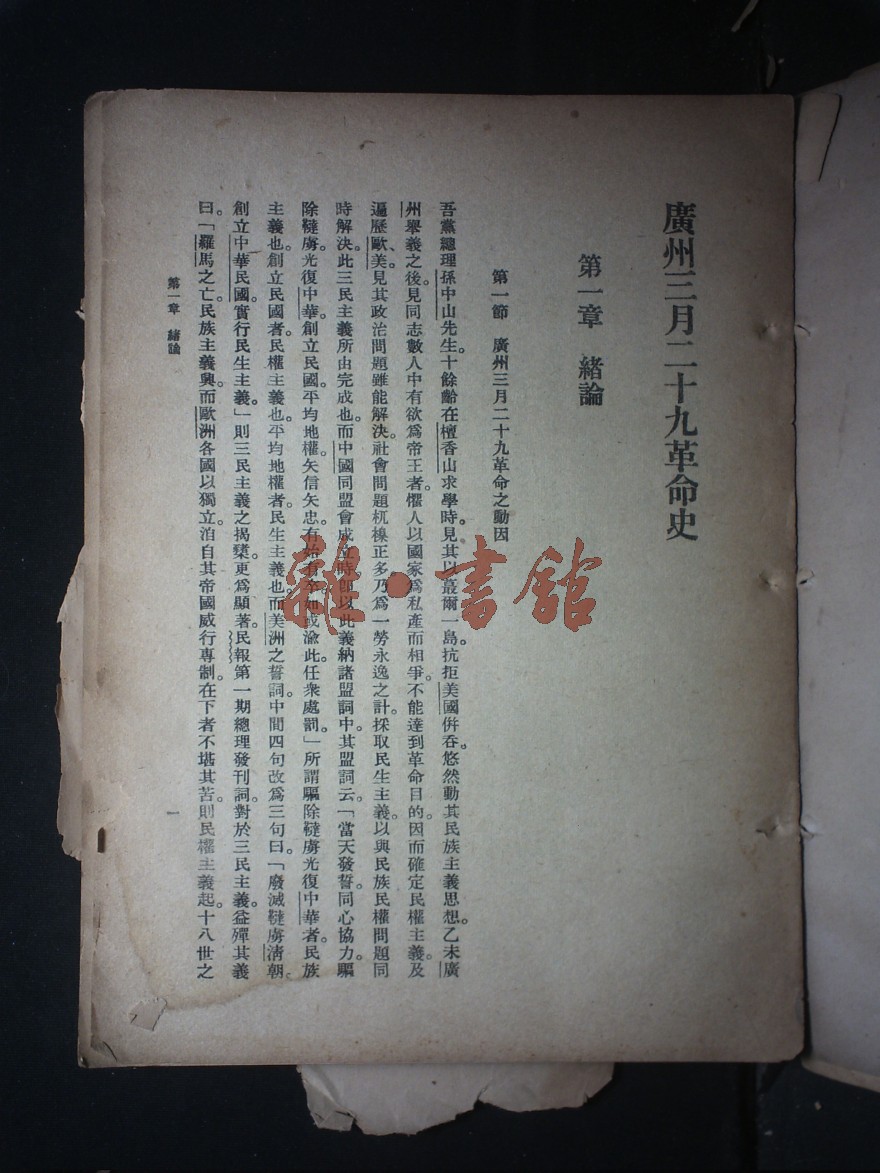 廣州三月二十九革命史
第一章　緒論
第一節　廣州三月二十九革命之動因
吾黨總理孫中山先生。十餘齡在檀香山求學時。見其以蕞爾一島。抗拒美國併吞。悠然動其民族主義思想。乙未廣
州舉義之後。見同志數人中有欲爲帝王者。懼人以國家爲私產而相爭。不能達到革命目的。因而確定民權主義。及
遍歷歐、美。見其政治問題雖能解決。社會問題杌槷正多。乃爲一勞永逸之計。採取民生主義。以與民族民權問題同
時解決。此三民主義所由完成也。而中國同盟會成立時。卽以此義納諸盟詞中。其盟詞云。「當天發誓。同心協力。驅
除韃虜。光復中華。創立民國。平均地權。矢信矢忠。有始有卒。如或渝此。任衆處罰。」所謂驅除韃虜光復中華者。民族
主義也。創立民國者。民權主義也。平均地權者。民生主義也。而美洲之誓詞。中間四句改爲三句曰。「廢滅韃虜清朝。
創立中華民國。實行民生主義。」則三民主義之揭櫫。更爲顯著。民報第一期總理發刊詞。對於三民主義。益殫其義
曰。「羅馬之亡。民族主義興。而歐洲各國以獨立。洎自其帝國威行專制。在下者不堪其苦。則民權主義起。十八世之
第一章　緒論
一
雜·書館